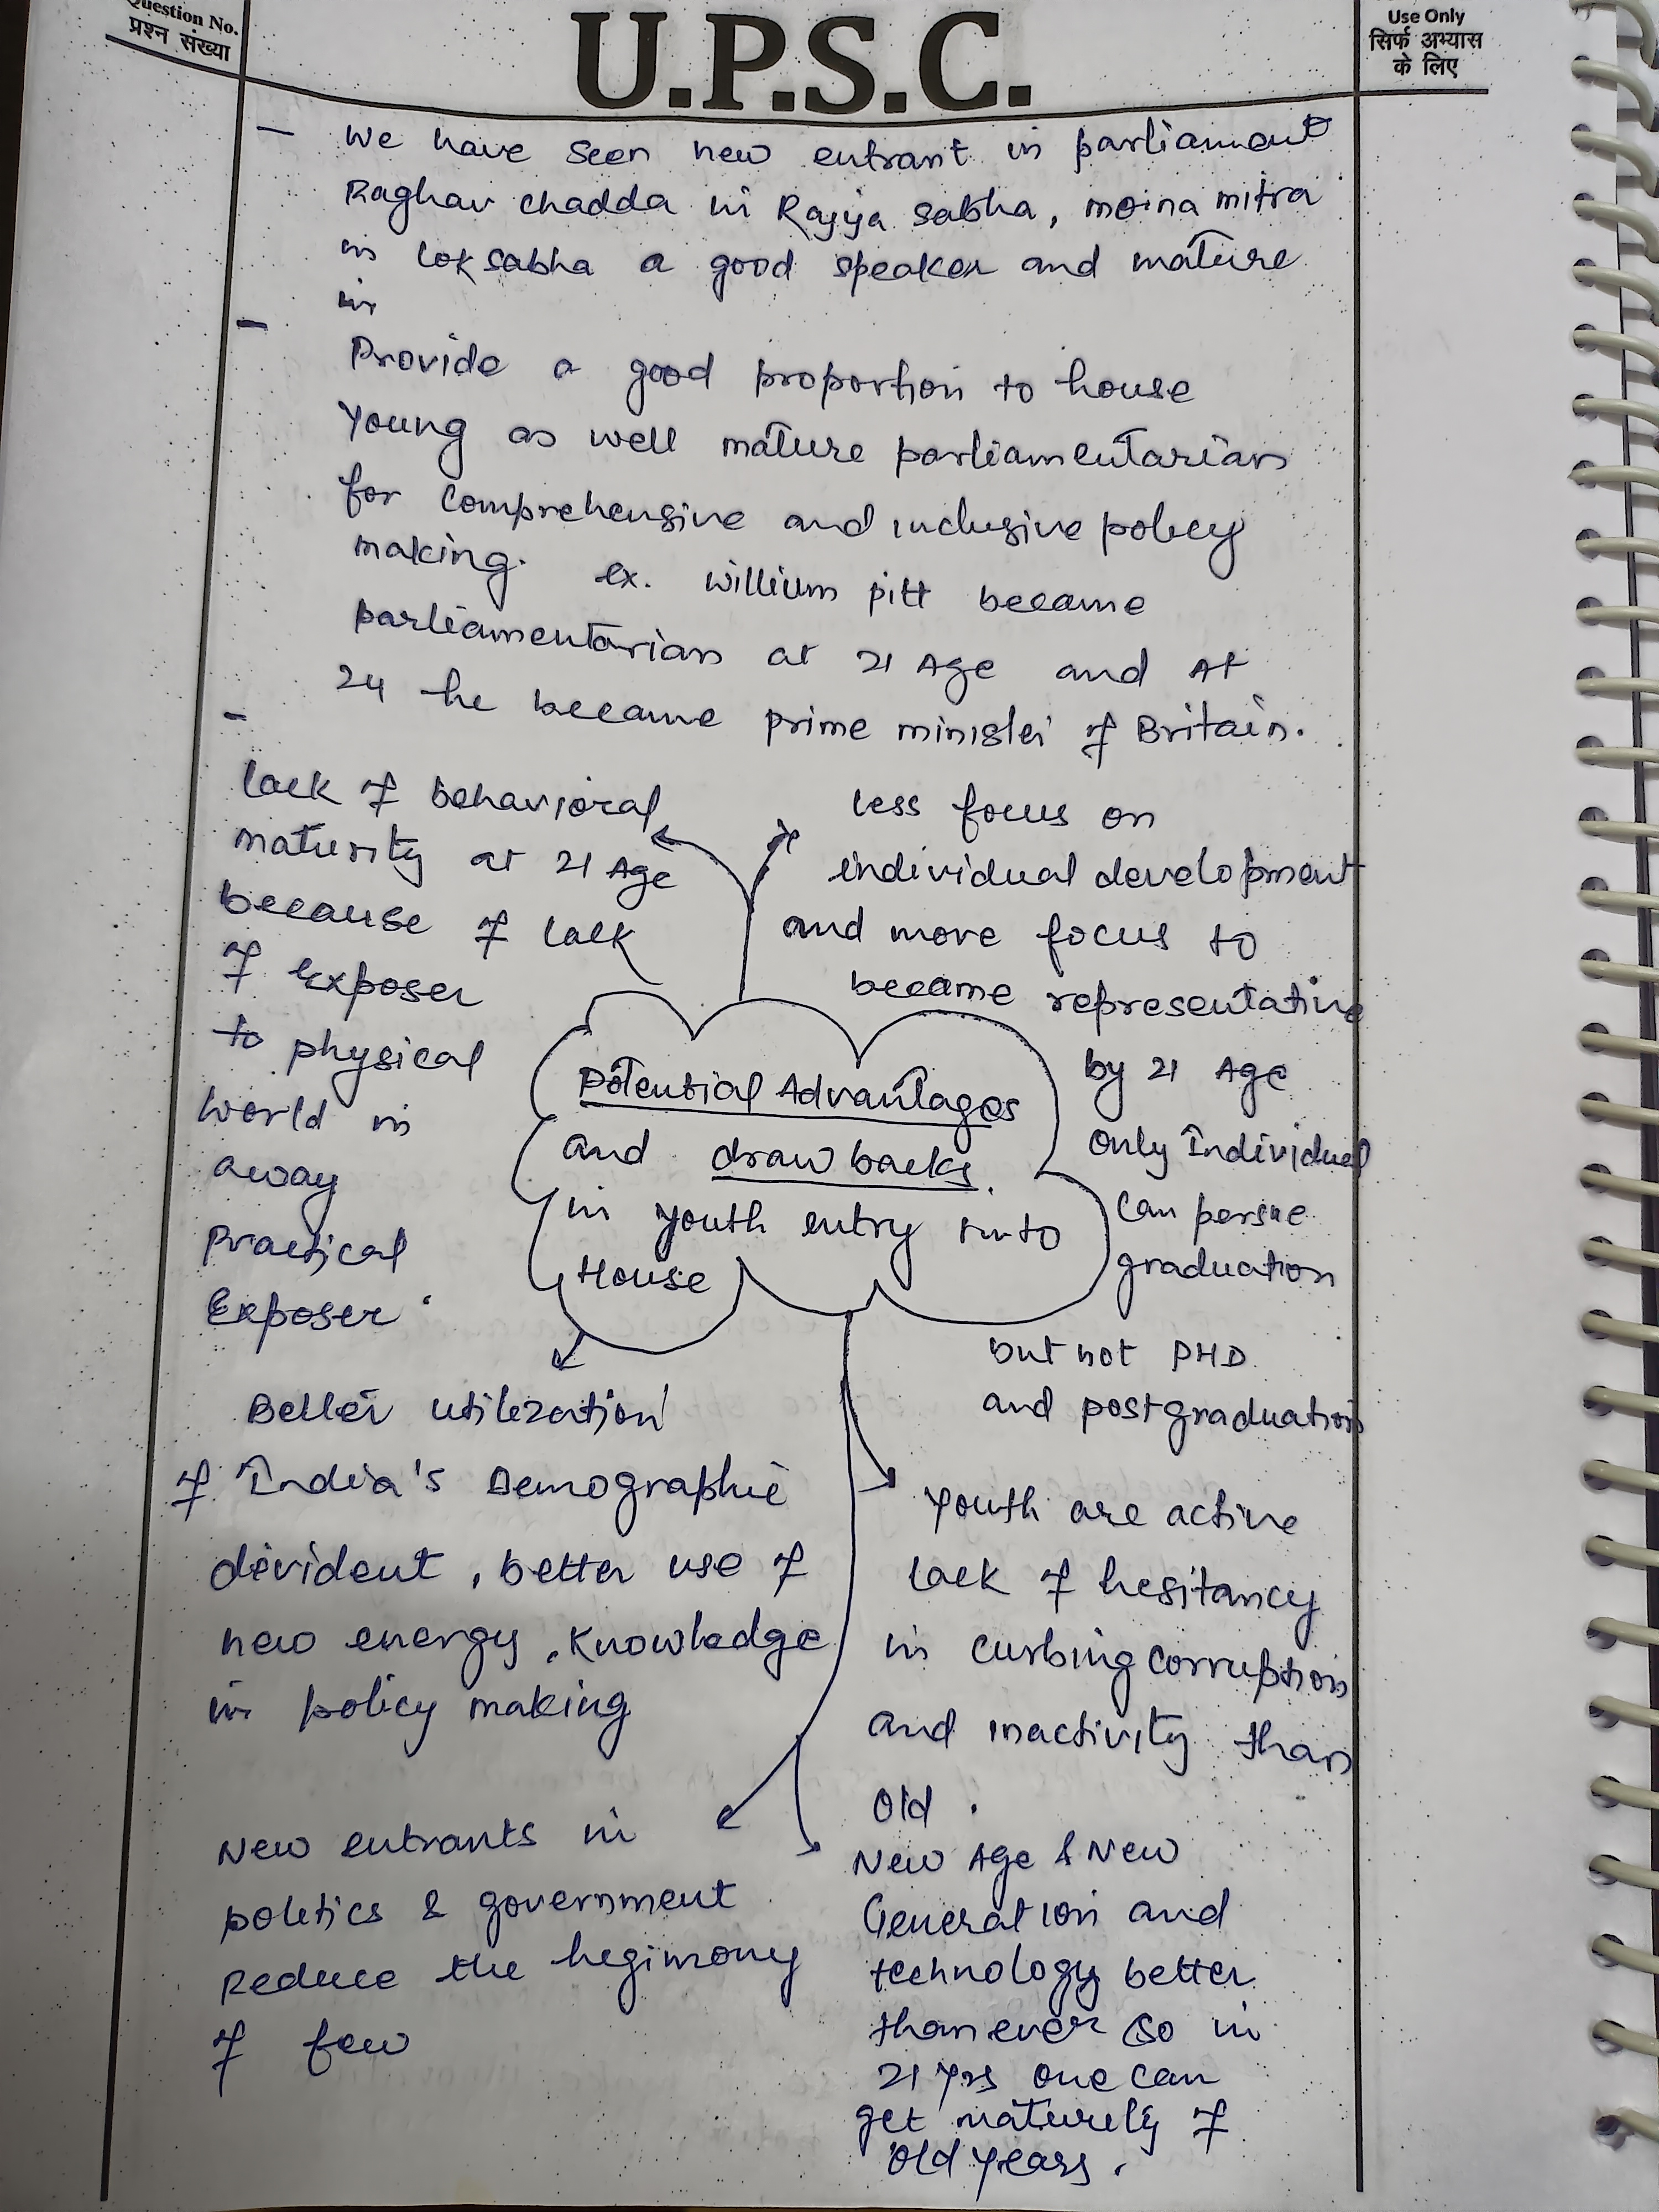 Question No.
प्रश्न संख्या
U.P.S.C.
Use Only
सिर्फ अभ्यास
के लिए
- We have seen new entrant in parliament
Raghav chadda in Rajya sabha, moina mitra
in loksabha a good speaker and mature
in
- Provide a good proportion to house
Young as well mature parliamentarian
for comprehensive and inclusive policy
making. ex. willium pitt became
parliamentarian at 21 Age and At
24 he became prime minister of Britain.
-
lack of behavioral
maturity at 21 Age
because of lack
of Exposer
to physical
world in
away
Practical
Exposer.
less focus on
individual development
and more focus to
became representative
by 21 Age
only Individual
can persue
graduation
but not PHD
and postgraduation
Potential Advantages
and drawbacks.
in youth entry into
House
Better utilization
of India's Demographic
divident, better use of
new energy, knowledge
in policy making
Youth are active
lack of hesitancy
in curbing corruption
and inactivity than
old.
New entrants in
politics & government
reduce the hegimony
of few
New Age & New
Generation and
technology better
than ever so in
21 yrs one can
get maturely of
old years.